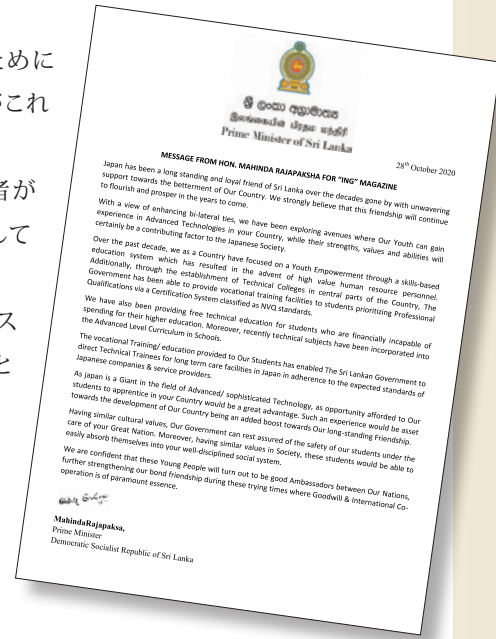 ために
これ
者が
して
ス
と
ශ්‍රී ලංකා අග්‍රාමාත්‍ය
இலங்கையின் பிரதம மந்திரி
Prime Minister of Sri Lanka
28th October 2020
MESSAGE FROM HON. MAHINDA RAJAPAKSHA FOR "ING" MAGAZINE
Japan has been a long standing and loyal friend of Sri Lanka over the decades gone by with unwavering
support towards the betterment of Our Country. We strongly believe that this friendship will continue
to flourish and prosper in the years to come.
With a view of enhancing bi-lateral ties, we have been exploring avenues where Our Youth can gain
experience in Advanced Technologies in your Country, while their strengths, values and abilities will
certainly be a contributing factor to the Japanese Society.
Over the past decade, we as a Country have focused on a Youth Empowerment through a skills-based
education system which has resulted in the advent of high value human resource personnel.
Additionally, through the establishment of Technical Colleges in central parts of the Country, The
Government has been able to provide vocational training facilities to students prioritizing Professional
Qualifications via a Certification System classified as NVQ standards.
We have also been providing free technical education for students who are financially incapable of
spending for their higher education. Moreover, recently technical subjects have been incorporated into
the Advanced Level Curriculum in Schools.
The vocational Training/ education provided to Our Students has enabled The Sri Lankan Government to
direct Technical Trainees for long term care facilities in Japan in adherence to the expected standards of
Japanese companies & service providers.
As Japan is a Giant in the field of Advanced/ sophisticated Technology, as opportunity afforded to Our
students to apprentice in your Country would be a great advantage. Such an experience would be asset
towards the development of Our Country being an added boost towards Our long-standing Friendship.
Having similar cultural values, Our Government can rest assured of the safety of our students under the
care of your Great Nation. Moreover, having similar values in Society, these students would be able to
easily absorb themselves into your well-disciplined social system.
We are confident that these Young People will turn out to be good Ambassadors between Our Nations,
further strengthening our bond friendship during these trying times where Goodwill & International Co-
operation is of paramount essence.
MahindaRajapaksa,
Prime Minister
Democratic Socialist Republic of Sri Lanka